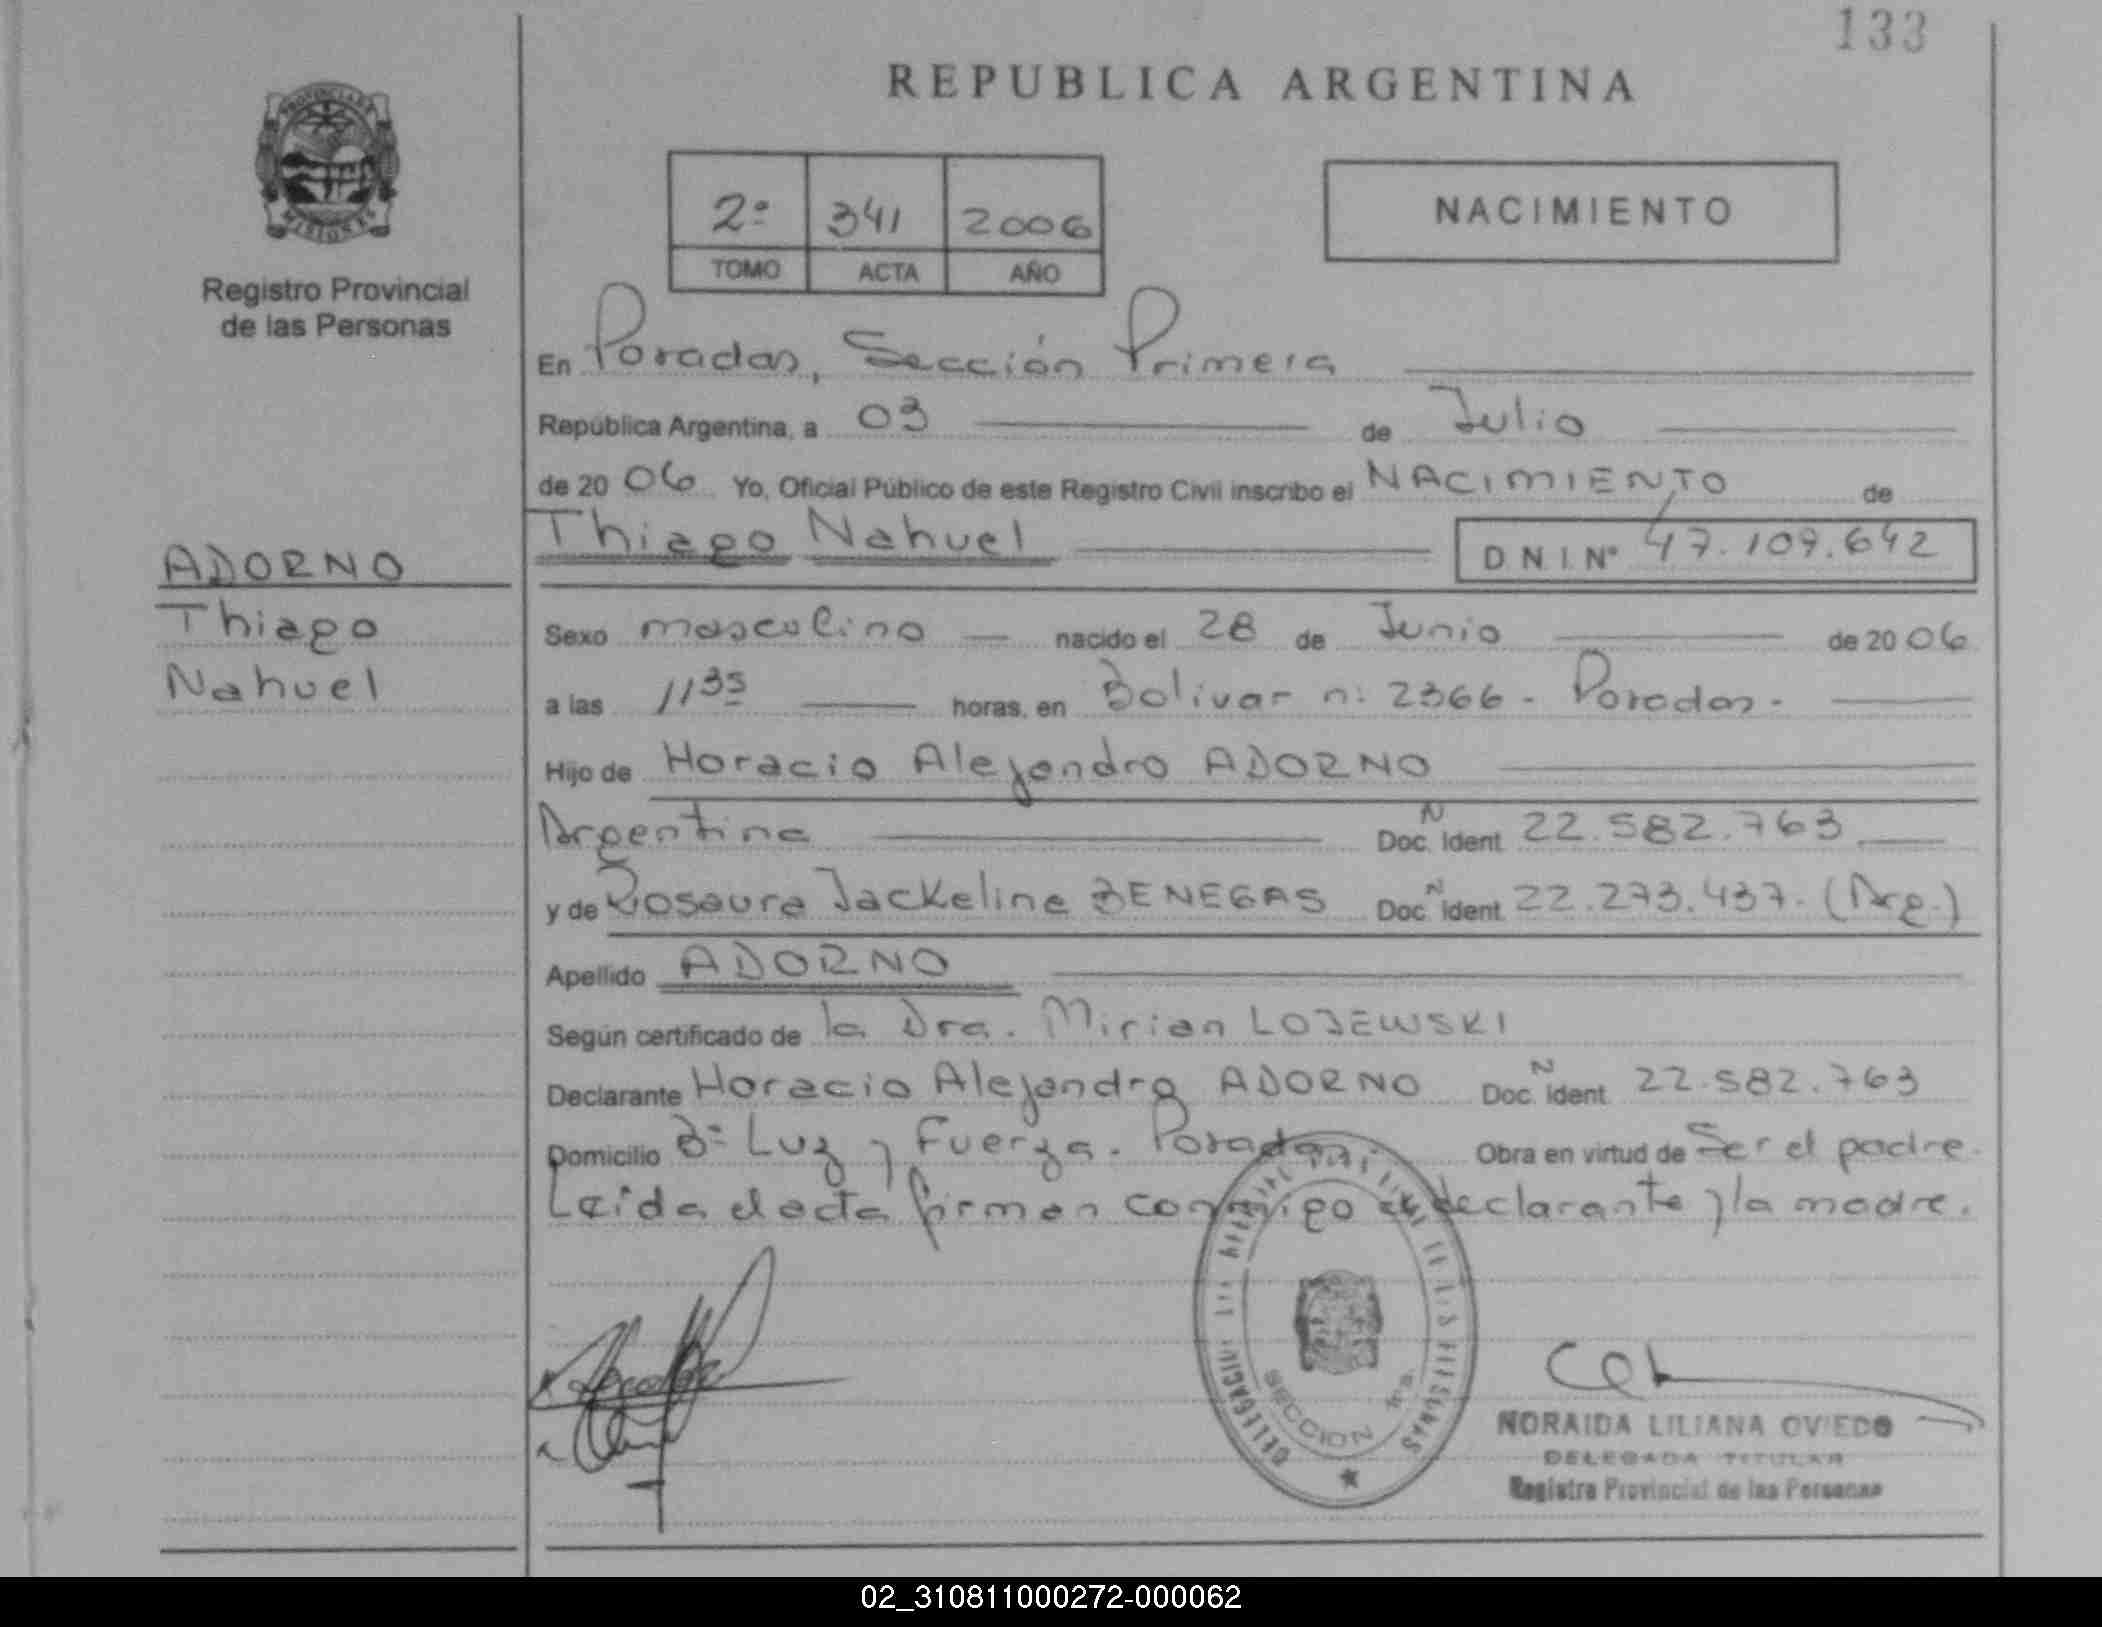 133
REPUBLICA ARGENTINA
PROVINCIA DE
MISIONES
Registro Provincial
de las Personas
2º 341 2006
TOMO ACTA AÑO
NACIMIENTO
En Posadas, Sección Primera
República Argentina, a 03 de Julio
de 2006 Yo, Oficial Público de este Registro Civil inscribo el NACIMIENTO de
Thiago Nahuel D.N.I. Nº 47.109.642
ADORNO
Thiago
Nahuel
Sexo masculino nacido el 28 de Junio de 2006
a las 11 35 horas, en Bolivar nº 2366 - Posadas -
Hijo de Horacio Alejandro ADORNO
Argentina Doc. N Ident 22.582.763
y de Rosaura Jackeline BENEGAS Doc. N Ident 22.273.437. (Arg.)
Apellido ADORNO
Según certificado de la Dra. Mirian LOJEWSKI
Declarante Horacio Alejandro ADORNO Doc. N Ident 22.582.763
Domicilio Bº Luz y Fuerza. Posadas Obra en virtud de Ser el padre.
Leida el acta firman conmigo el declarante y la madre.
SECCION 1ra.
NORAIDA LILIANA OVIEDO
DELEGADA TITULAR
Registro Provincial de las Personas
02_310811000272-000062